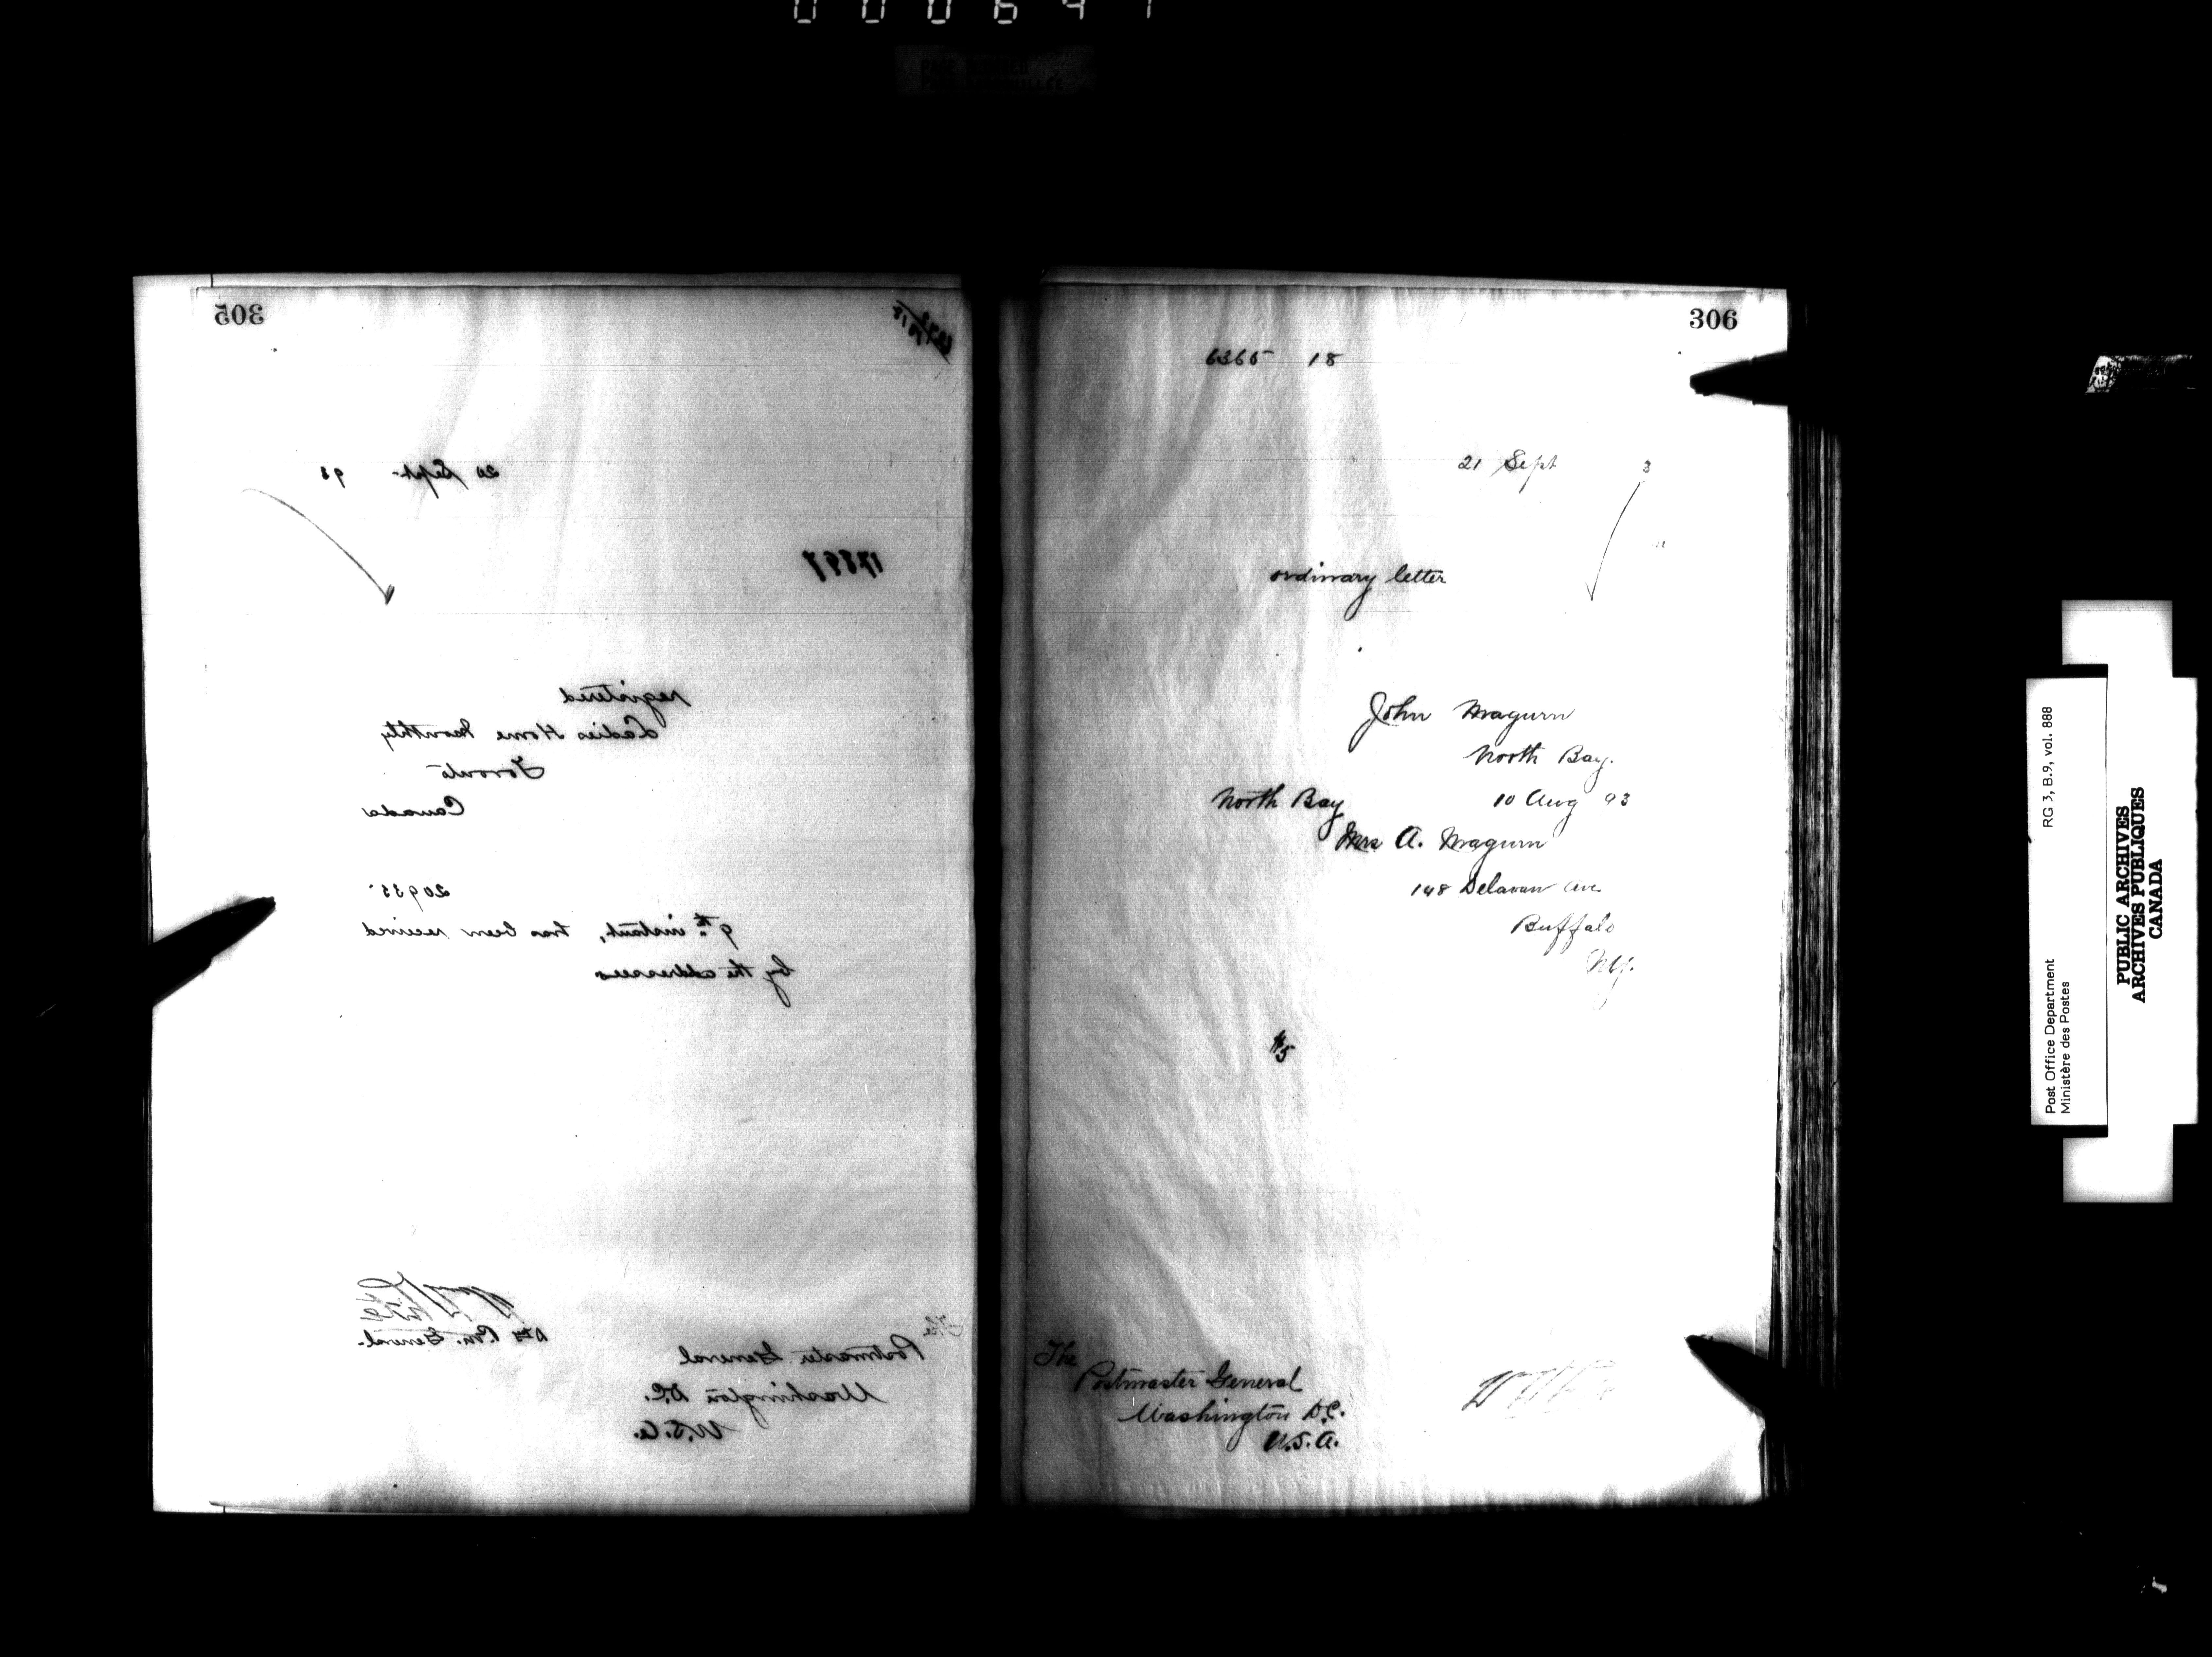 305
20 Sept. 93
17897
registered
Ladies Home Monthly
Toronto
Canada
20935
9th instant, has been received
by the addressees
Dty P.M. General.
The
Postmaster General
Washington D.C.
U.S.A.
306
6365 18
21 Sept 3
ordinary letter
John Magurn
North Bay.
North Bay 10 Aug 93
Mrs A. Magurn
148 Delavan Ave
Buffalo
N.Y.
$5
The
Postmaster General
Washington D.C.
U.S.A.
Post Office Department RG 3, B.9, vol. 888
Ministère des Postes
PUBLIC ARCHIVES
ARCHIVES PUBLIQUES
CANADA